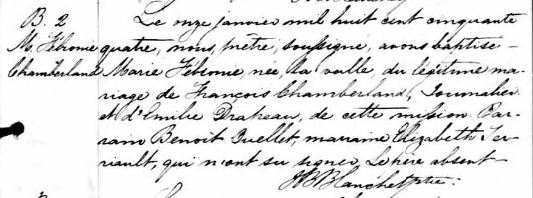 B. 2 Le onze janvier mil huit cent cinquante
M. Fébronie quatre, nous prêtre, soussigné, avons baptisé
Chamberland Marie Fébronie, née la veille du légitime ma-
riage de François Chamberland, Journalier
et d'Emilie Drapeau, de cette mission. Par-
rain Benoit Ouellet, marraine Elizabeth Ter-
riault, qui n'ont su signer. Le père absent
Blanchet ptre.